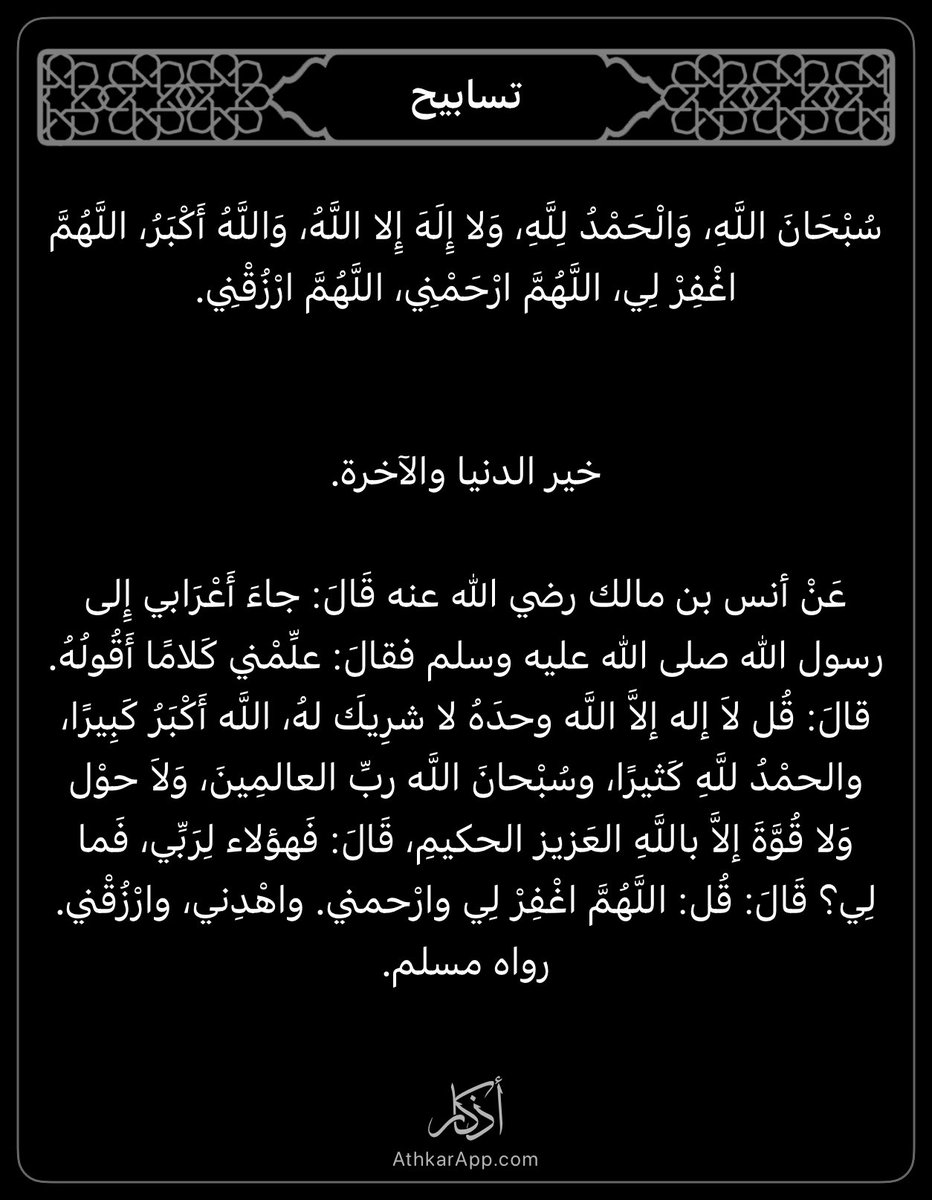 تسابيح
سُبْحَانَ اللَّهِ، وَالْحَمْدُ لِلَّهِ، وَلا إِلَهَ إِلا اللَّهُ، وَاللَّهُ أَكْبَرُ، اللَّهُمَّ
اغْفِرْ لِي، اللَّهُمَّ ارْحَمْنِي، اللَّهُمَّ ارْزُقْنِي.
خير الدنيا والآخرة.
عَنْ أنس بن مالك رضي الله عنه قَالَ: جاءَ أَعْرَابي إِلى
رسول الله صلى الله عليه وسلم فقالَ: علِّمْني كَلامًا أَقُولُهُ.
قالَ: قُل لاَ إله إلاَّ اللَّه وحدَهُ لا شرِيكَ لهُ، اللَّه أَكْبَرُ كَبِيرًا،
والحمْدُ للَّهِ كَثيرًا، وسُبْحانَ اللَّه ربِّ العالمِينَ، وَلاَ حوْل
وَلا قُوَّةَ إلاَّ باللَّهِ العَزيز الحكيمِ، قَالَ: فَهؤلاء لِرَبِّي، فَما
لِي؟ قَالَ: قُل: اللَّهُمَّ اغْفِرْ لِي وارْحمني. واهْدِني، وارْزُقْني.
رواه مسلم.
أذكار
AthkarApp.com